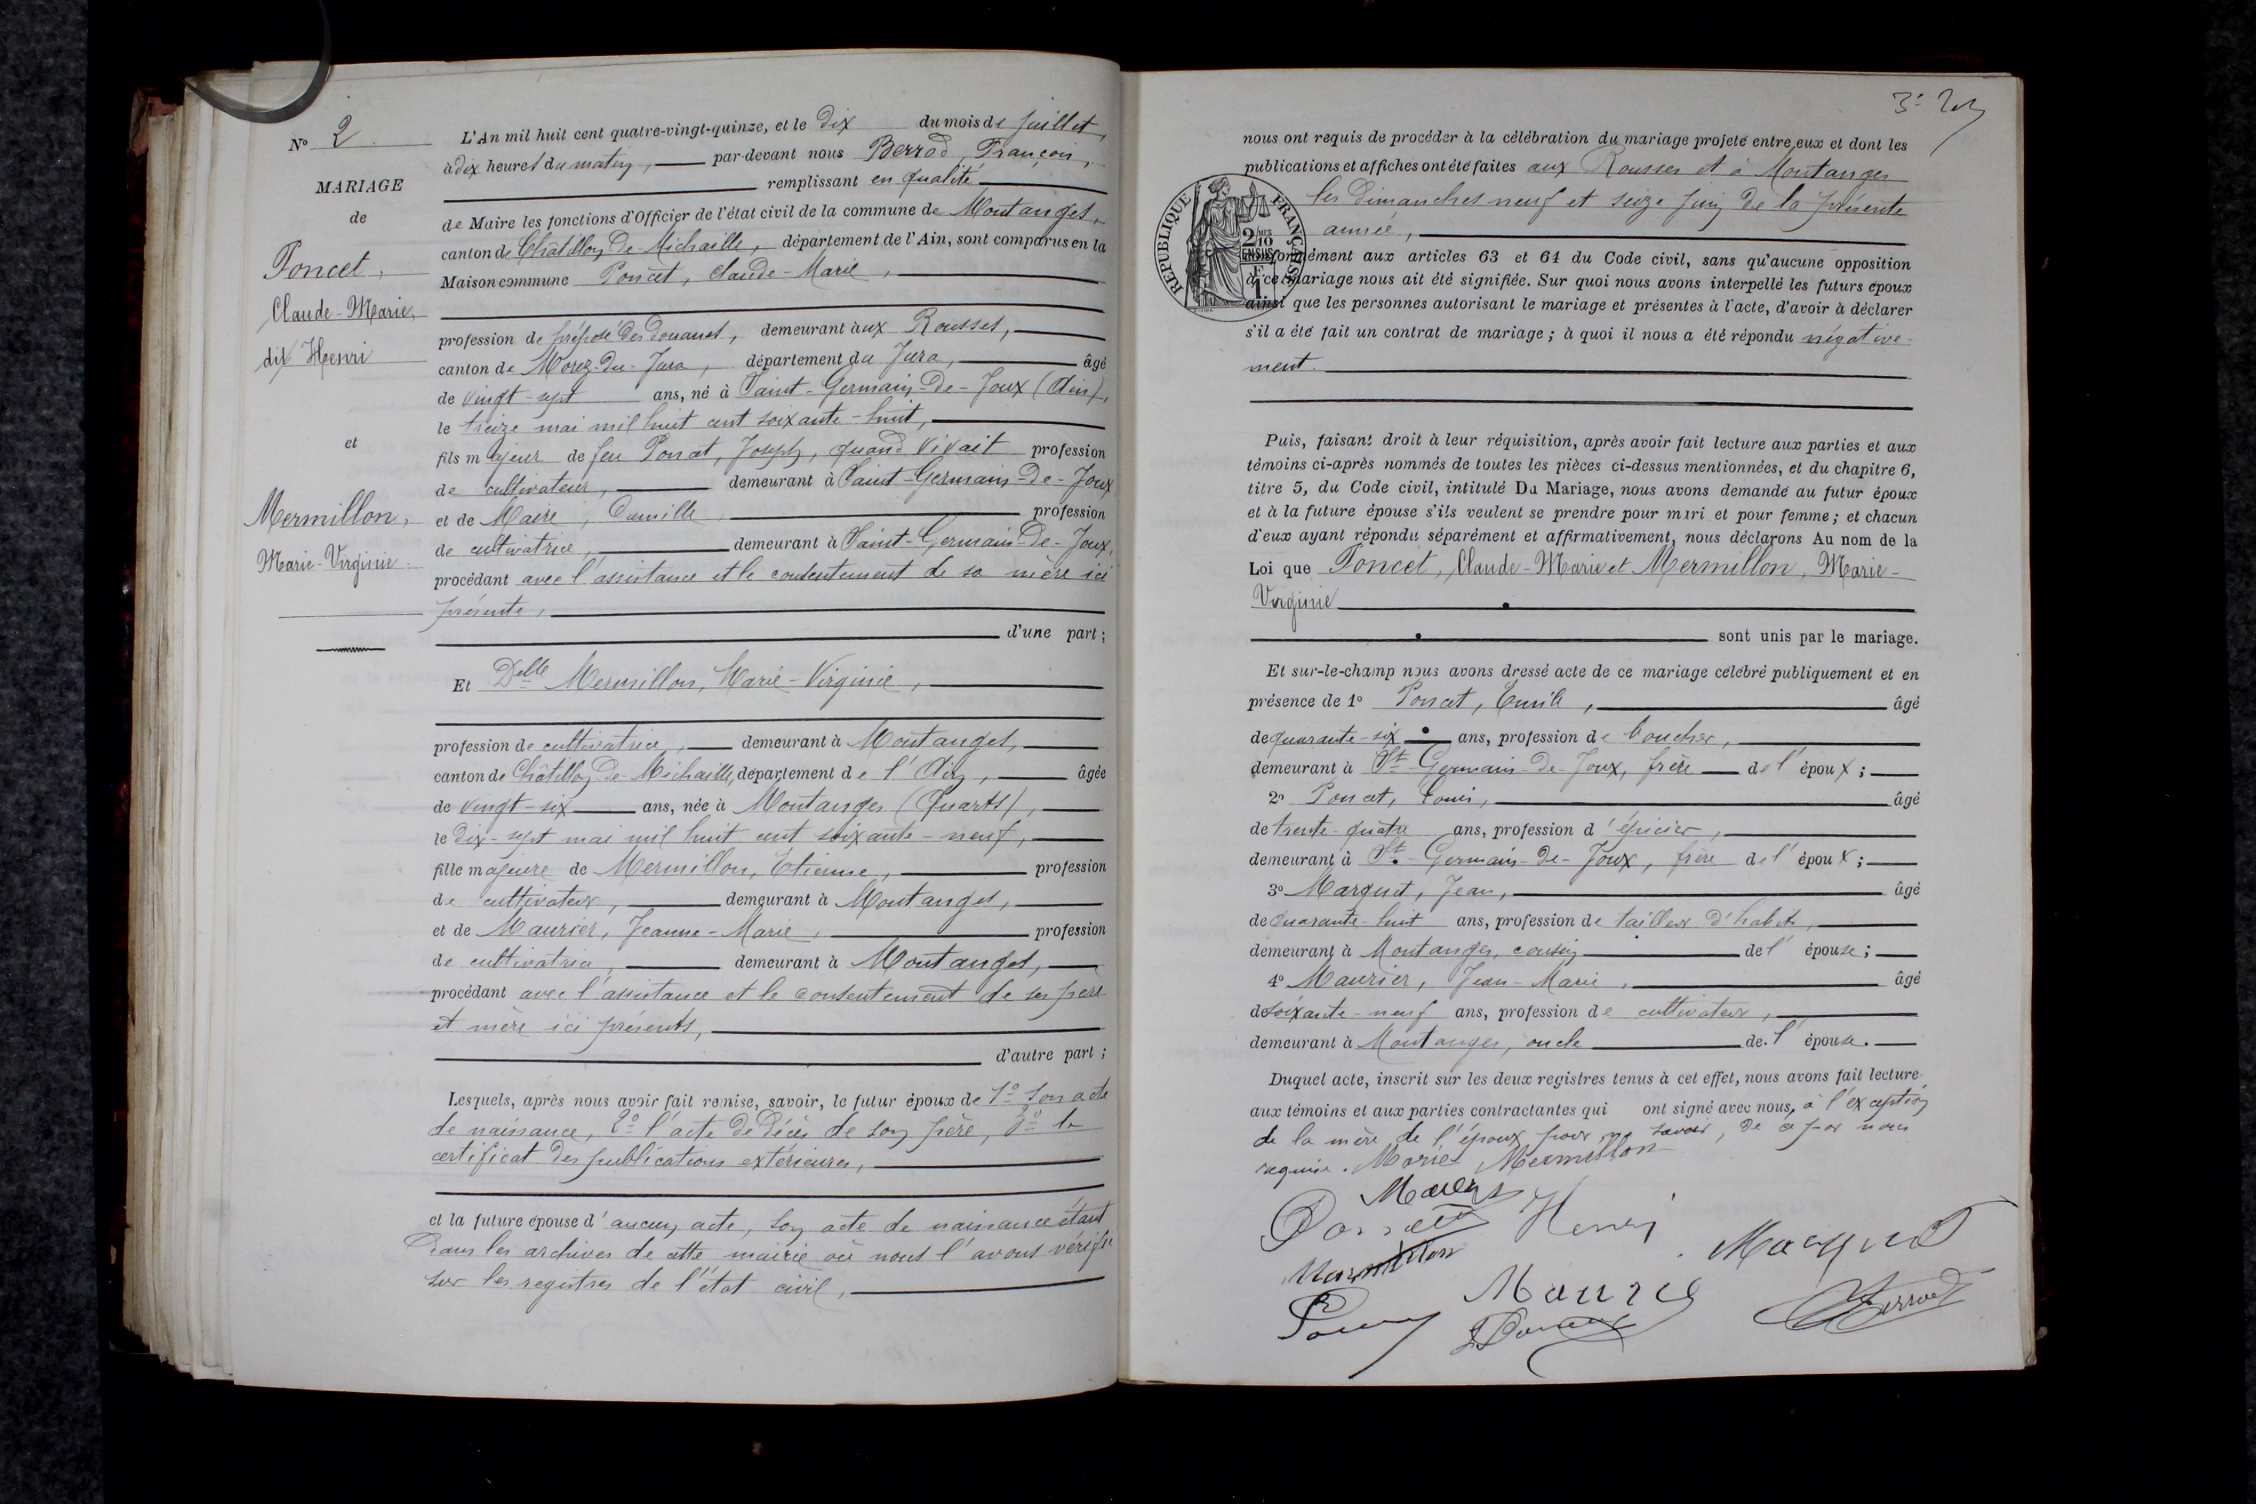 N° 2
MARIAGE
de
Poncet,
Claude-Marie,
dit Henri
et
Mermillon,
Marie-Virginie
L'An mil huit cent quatre-vingt-quinze, et le dix du mois de juillet,
à dix heures du matin, par-devant nous Berrod, François,
remplissant en qualité
de Maire les fonctions d'Officier de l'état civil de la commune de Montanges,
canton de Châtillon-De-Michaille, département de l'Ain, sont comparus en la
Maison commune Poncet, Claude-Marie,
profession de préposé des douanes, demeurant aux Rousses,
canton de Morez-du-Jura, département du Jura, âgé
de vingt-sept ans, né à Saint-Germain-De-Joux (Ain),
le treize mai mil huit cent soixante-huit,
fils majeur de feu Poncet, Joseph, quand vivait profession
de cultivateur, demeurant à Saint-Germain-De-Joux
et de Maire, Camille profession
de cultivatrice, demeurant à Saint-Germain-De-Joux,
procédant avec l'assistance et le consentement de sa mère ici
présente,
d'une part;
Et Delle Mermillon, Marie-Virginie,
profession de cultivatrice, demeurant à Montanges,
canton de Châtillon-De-Michaille, département de l'Ain, âgée
de vingt-six ans, née à Montanges (Quarts),
le dix-sept mai mil huit cent soixante-neuf,
fille majeure de Mermillon, Etienne, profession
de cultivateur, demeurant à Montanges,
et de Maurier, Jeanne-Marie, profession
de cultivatrice, demeurant à Montanges,
procédant avec l'assistance et le consentement de ses père
et mère ici présents,
d'autre part;
Lesquels, après nous avoir fait remise, savoir, le futur époux de 1° son acte
de naissance, 2° l'acte de décès de son père, 3° le
certificat des publications extérieures,
et la future épouse d'aucun acte, son acte de naissance étant
dans les archives de cette mairie où nous l'avons vérifié
sur les registres de l'état civil,
3e
nous ont requis de procéder à la célébration du mariage projeté entre eux et dont les
publications et affiches ont été faites aux Rousses et à Montanges
les dimanches neuf et seize juin de la présente
année,
RÉPUBLIQUE FRANÇAISE
2/10 EN SUS
1 F
conformément aux articles 63 et 64 du Code civil, sans qu'aucune opposition
à ce mariage nous ait été signifiée. Sur quoi nous avons interpellé les futurs époux
ainsi que les personnes autorisant le mariage et présentes à l'acte, d'avoir à déclarer
s'il a été fait un contrat de mariage; à quoi il nous a été répondu négative-
ment.
Puis, faisant droit à leur réquisition, après avoir fait lecture aux parties et aux
témoins ci-après nommés de toutes les pièces ci-dessus mentionnées, et du chapitre 6,
titre 5, du Code civil, intitulé Du Mariage, nous avons demandé au futur époux
et à la future épouse s'ils veulent se prendre pour mari et pour femme; et chacun
d'eux ayant répondu séparément et affirmativement, nous déclarons Au nom de la
Loi que Poncet, Claude-Marie et Mermillon, Marie-
Virginie
sont unis par le mariage.
Et sur-le-champ nous avons dressé acte de ce mariage célébré publiquement et en
présence de 1° Poncet, Emile, âgé
de quarante-six ans, profession de boucher,
demeurant à St-Germain-De-Joux, frère de l'époux;
2° Poncet, Louis, âgé
de trente-quatre ans, profession d'épicier,
demeurant à St-Germain-De-Joux, frère de l'époux;
3° Marquet, Jean, âgé
de quarante-huit ans, profession de tailleur d'habits,
demeurant à Montanges, cousin de l'épouse;
4° Maurier, Jean-Marie, âgé
de soixante-neuf ans, profession de cultivateur,
demeurant à Montanges, oncle de l'épouse.
Duquel acte, inscrit sur les deux registres tenus à cet effet, nous avons fait lecture
aux témoins et aux parties contractantes qui ont signé avec nous, à l'exception
de la mère de l'époux pour ne savoir, de ce par nous
requise. Marie Mermillon
Poncet Henri
Marquet
Mermillon
Maurie
Berrod